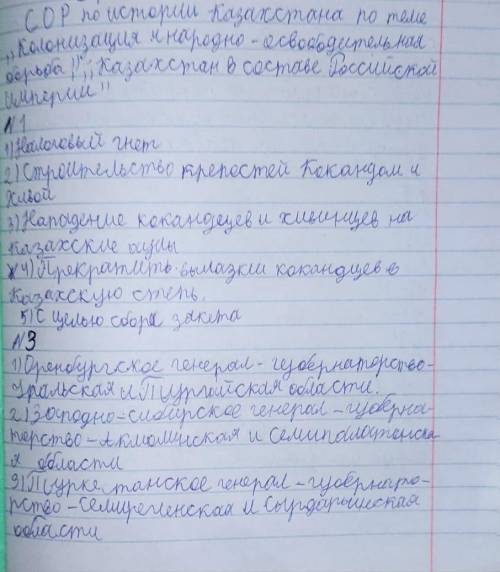 СОР по истории Казахстана по теме
,,Колонизация и народно-освободительная
борьба",;,,Казахстан в составе Российской
империи"
N1
1) Налоговый гнет
2) Строительство крепостей Кокандом и
Хивой
3) Нападение кокандецев и хивинцев на
казахские аулы
4) Прекратить вылазки кокандцев в
Казахскую степь.
5) С целью сбора закята
N3
1) Оренбургское генерал-губернаторство-
Уральская и Тургайская области.
2) Западно-сибирское генерал-губерна-
торство-Акмолинская и Семипалатинска
я области
3) Туркестанское генерал-губернато-
рство-Семиреченская и Сырдарьинская
области